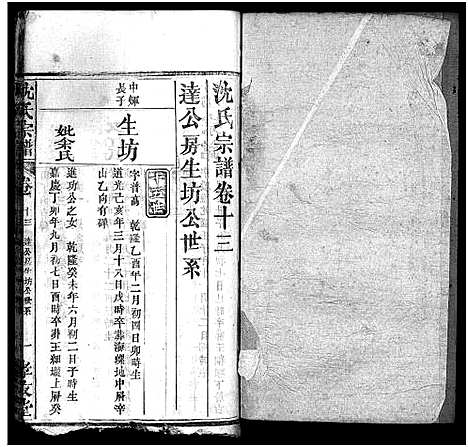 沈氏宗譜卷十三
達公房生坊公世系
十五世
中輝長子
生坊
字普萬 乾隆乙酉年二月初四日卯時生
道光己亥年三月十八日戌時卒葬海螺地中層辛
山乙向有碑
妣余氏
進功公之女 乾隆癸未年六月初二日子時生
嘉慶丁卯年九月初七日酉時卒葬王
沈氏宗譜 卷十三 達公房生坊公世系 一